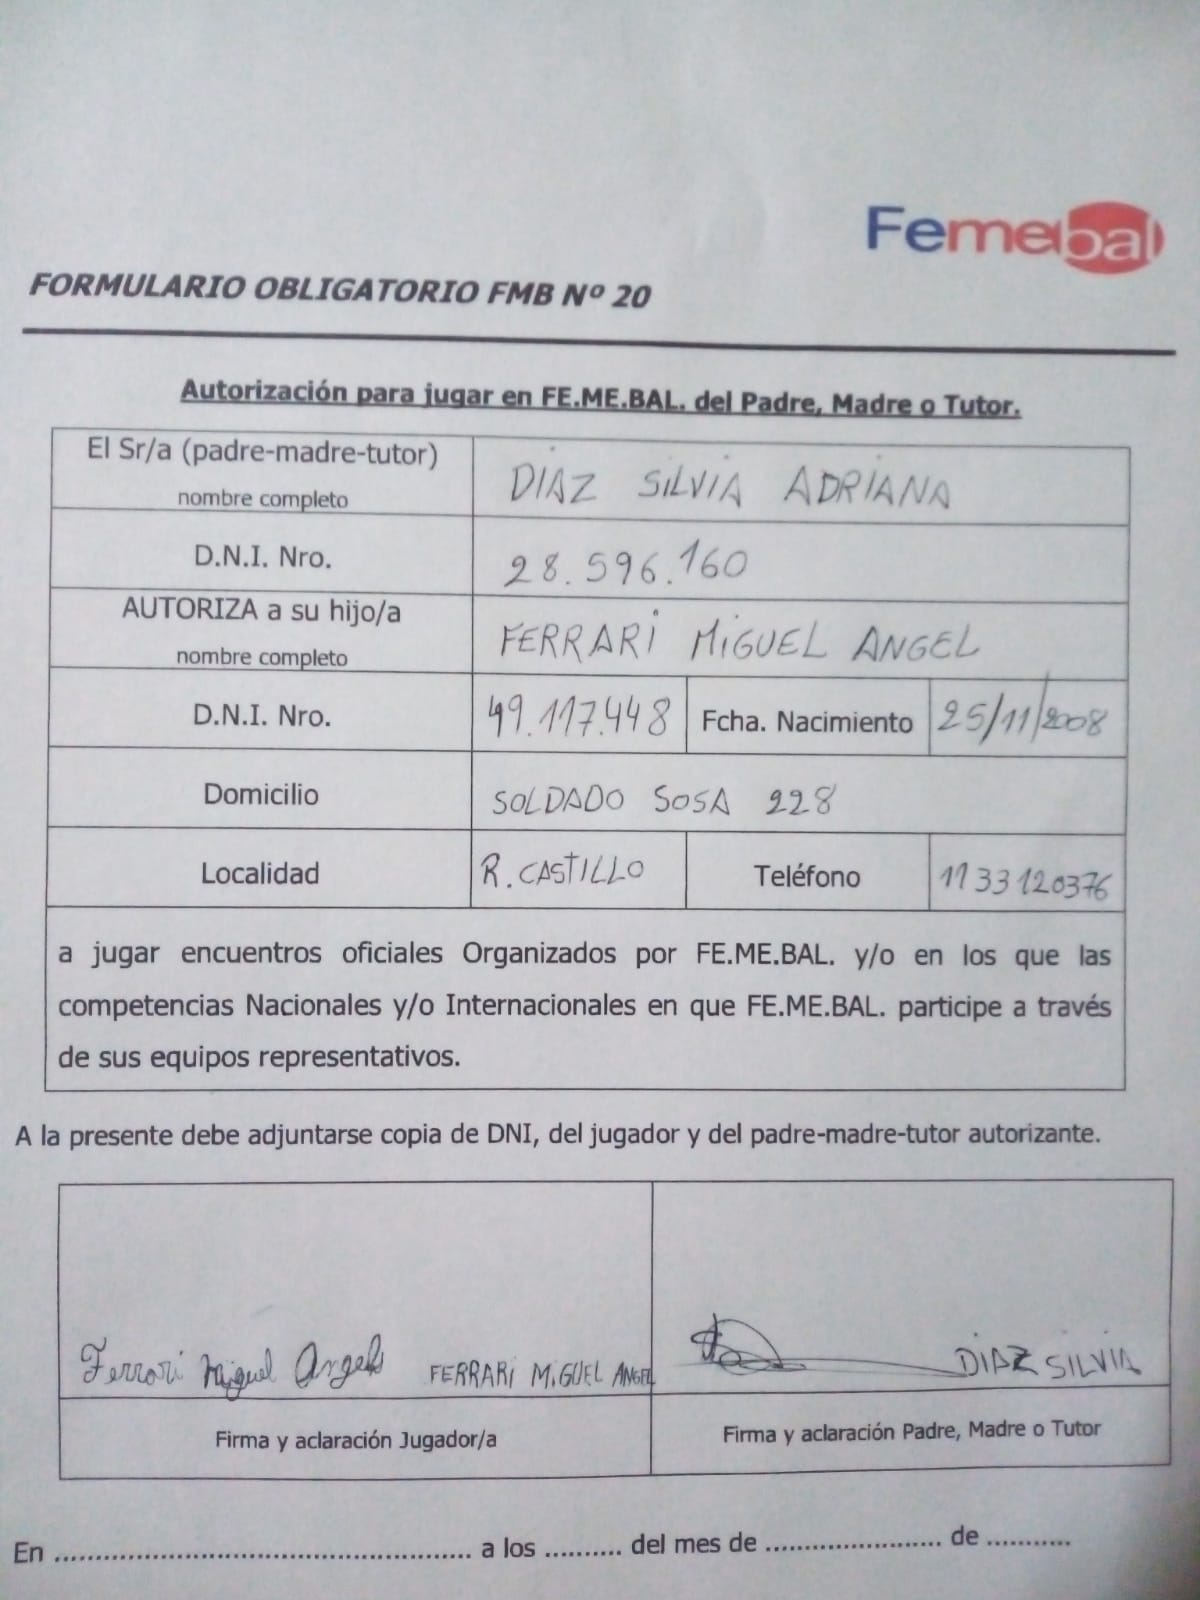 Femebal
FORMULARIO OBLIGATORIO FMB Nº 20
Autorización para jugar en FE.ME.BAL. del Padre, Madre o Tutor.
El Sr/a (padre-madre-tutor)
nombre completo
DIAZ SILVIA ADRIANA
D.N.I. Nro.
28.596.160
AUTORIZA a su hijo/a
nombre completo
FERRARI MIGUEL ANGEL
D.N.I. Nro.
49.117.448
Fcha. Nacimiento
25/11/2008
Domicilio
SOLDADO SOSA 228
Localidad
R. CASTILLO
Teléfono
1133120376
a jugar encuentros oficiales Organizados por FE.ME.BAL. y/o en los que las
competencias Nacionales y/o Internacionales en que FE.ME.BAL. participe a través
de sus equipos representativos.
A la presente debe adjuntarse copia de DNI, del jugador y del padre-madre-tutor autorizante.
Ferrari Miguel Angel FERRARI MIGUEL ANGEL
DIAZ SILVIA
Firma y aclaración Jugador/a
Firma y aclaración Padre, Madre o Tutor
En ................................................ a los .......... del mes de ....................... de ...........